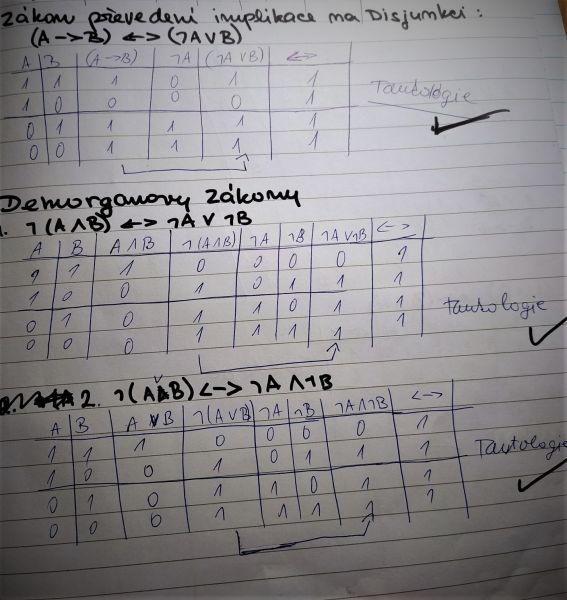 Zákon převedení implikace na Disjunkci:
(A -> B) <-> (¬A ∨ B)
A B (A -> B) ¬A (¬A ∨ B) <->
1 1 1 0 1 1
1 0 0 0 0 1
0 1 1 1 1 1
0 0 1 1 1 1
Tautologie
Demorganovy zákony
1. ¬(A ∧ B) <-> ¬A ∨ ¬B
A B A ∧ B ¬(A ∧ B) ¬A ¬B ¬A ∨ ¬B <->
1 1 1 0 0 0 0 1
1 0 0 1 0 1 1 1
0 1 0 1 1 0 1 1
0 0 0 1 1 1 1 1
Tautologie
2. ¬(A ∨ B) <-> ¬A ∧ ¬B
A B A ∨ B ¬(A ∨ B) ¬A ¬B ¬A ∧ ¬B <->
1 1 1 0 0 0 0 1
1 0 0 1 0 1 1 1
0 1 0 1 1 0 1 1
0 0 0 1 1 1 1 1
Tautologie